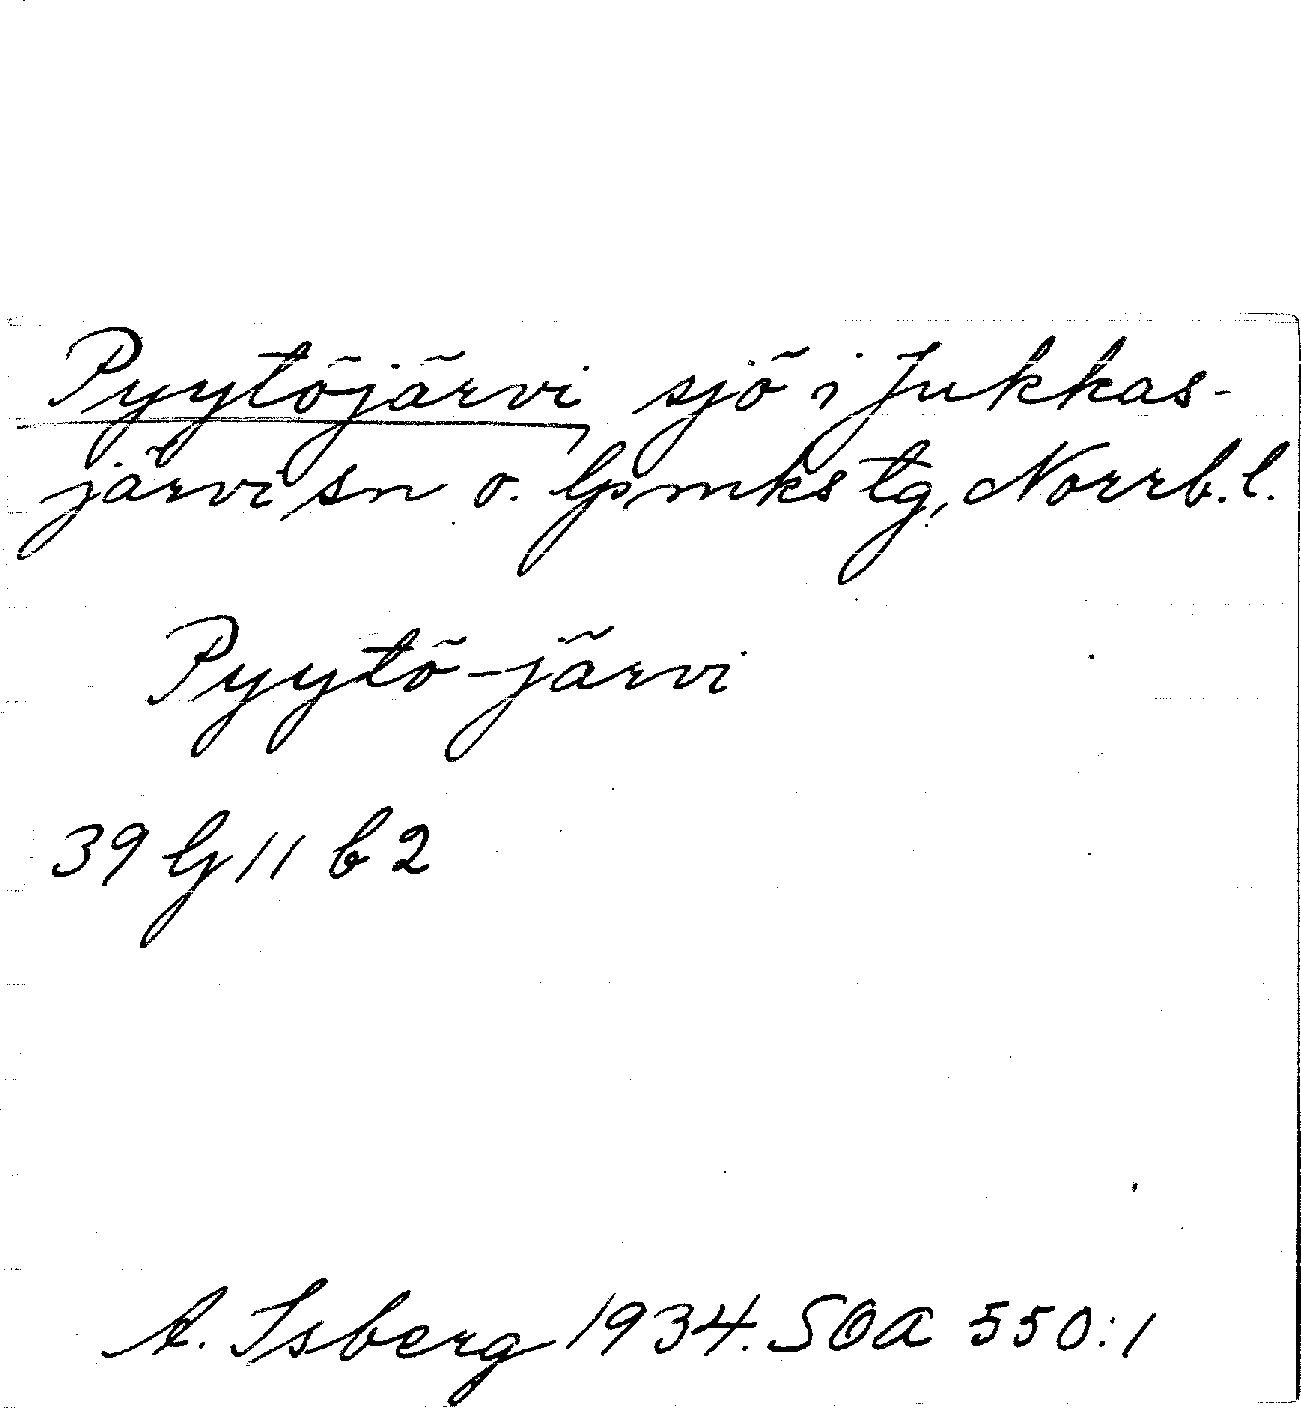 Pyytöjärvi sjö i Jukkas-
järvi sn o. lpmks tg, Norrb.l.
Pyytö-järvi
39 G 11 b 2
A. Isberg 1934. SOA 550:1